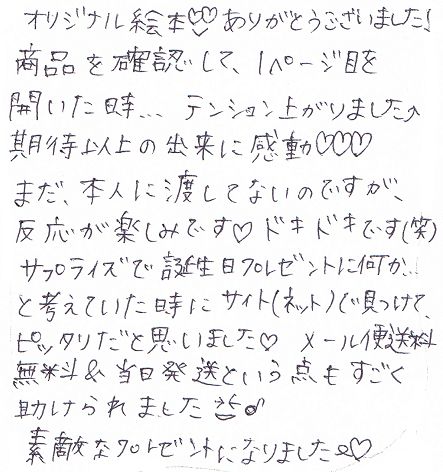 オリジナル絵本♡♡ありがとうございました!
商品を確認して、1ページ目を
開いた時... テンション上がりました↗
期待以上の出来に感動♡♡♡
まだ、本人に渡してないのですが、
反応が楽しみです♡ ドキドキです(笑)
サプライズで誕生日プレゼントに何か..
と考えていた時にサイト(ネット)で見つけて、
ピッタリだと思いました♡ メール便送料
無料&当日発送という点もすごく
助けられました♪
素敵なプレゼントになりました♡